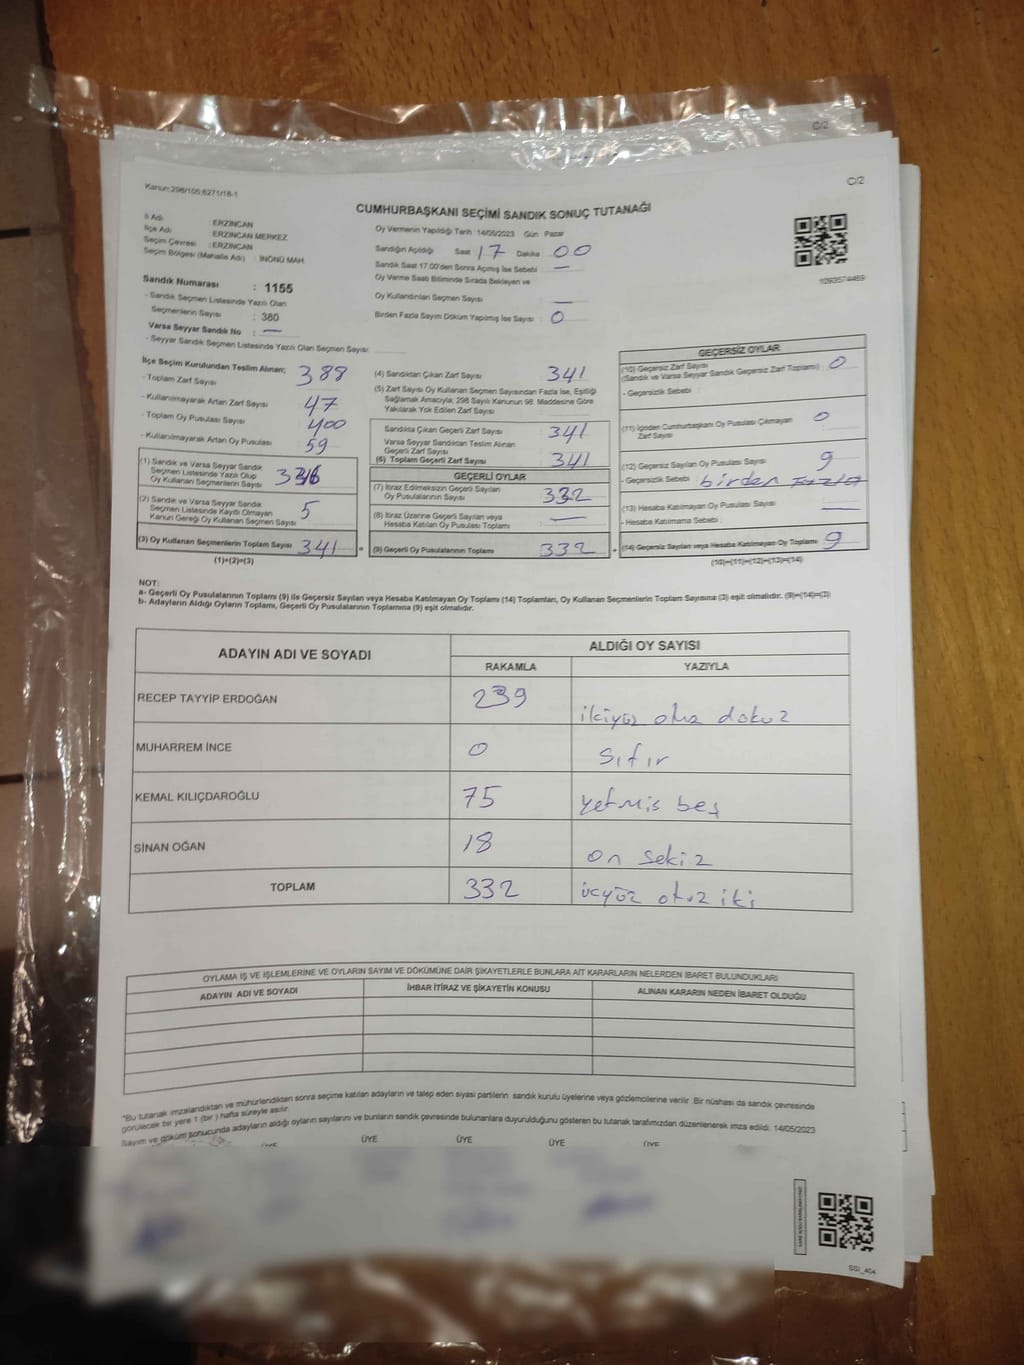 C/2
C/2
Kanun:298/105;6271/18-1
CUMHURBAŞKANI SEÇİMİ SANDIK SONUÇ TUTANAĞI
İl Adı : ERZİNCAN
İlçe Adı : ERZİNCAN MERKEZ
Seçim Çevresi : ERZİNCAN
Seçim Bölgesi (Mahalle Adı) : İNÖNÜ MAH.
Oy Vermenin Yapıldığı Tarih : 14/05/2023 Gün : Pazar
Sandığın Açıldığı Saat 17 Dakika : 00
Sandık Saat 17.00'den Sonra Açımış İse Sebebi : —
Oy Verme Saati Bitiminde Sırada Bekleyen ve
Oy Kullandırılan Seçmen Sayısı —
Birden Fazla Sayım Döküm Yapılmış İse Sayısı : 0
Sandık Numarası : 1155
- Sandık Seçmen Listesinde Yazılı Olan
Seçmenlerin Sayısı : 380
Varsa Seyyar Sandık No : —
- Seyyar Sandık Seçmen Listesinde Yazılı Olan Seçmen Sayısı:
İlçe Seçim Kurulundan Teslim Alınan;
- Toplam Zarf Sayısı 388
- Kullanılmayarak Artan Zarf Sayısı 47
- Toplam Oy Pusulası Sayısı 400
- Kullanılmayarak Artan Oy Pusulası 59
(1) Sandık ve Varsa Seyyar Sandık
Seçmen Listesinde Yazılı Olup
Oy Kullanan Seçmenlerin Sayısı
(2) Sandık ve Varsa Seyyar Sandık
Seçmen Listesinde Kayıtlı Olmayan
Kanun Gereği Oy Kullanan Seçmen Sayısı 5
(3) Oy Kullanan Seçmenlerin Toplam Sayısı 341
(1)+(2)=(3)
(4) Sandıktan Çıkan Zarf Sayısı 341
(5) Zarf Sayısı Oy Kullanan Seçmen Sayısından Fazla İse, Eşitliği
Sağlamak Amacıyla, 298 Sayılı Kanunun 98. Maddesine Göre
Yakılarak Yok Edilen Zarf Sayısı
Sandıkta Çıkan Geçerli Zarf Sayısı 341
Varsa Seyyar Sandıktan Teslim Alınan
Geçerli Zarf Sayısı
(6) Toplam Geçerli Zarf Sayısı 341
GEÇERLİ OYLAR
(7) İtiraz Edilmeksizin Geçerli Sayılan
Oy Pusulalarının Sayısı 332
(8) İtiraz Üzerine Geçerli Sayılan veya
Hesaba Katılan Oy Pusulası Toplamı —
(9) Geçerli Oy Pusulalarının Toplamı 332
GEÇERSİZ OYLAR
(10) Geçersiz Zarf Sayısı
(Sandık ve Varsa Seyyar Sandık Geçersiz Zarf Toplamı) : 0
- Geçersizlik Sebebi
(11) İçinden Cumhurbaşkanı Oy Pusulası Çıkmayan
Zarf Sayısı 0
(12) Geçersiz Sayılan Oy Pusulası Sayısı 9
- Geçersizlik Sebebi : birden fazla
(13) Hesaba Katılmayan Oy Pusulası Sayısı —
- Hesaba Katılmama Sebebi :
(14) Geçersiz Sayılan veya Hesaba Katılmayan Oy Toplamı 9
(10)+(11)+(12)+(13)=(14)
NOT:
a- Geçerli Oy Pusulalarının Toplamı (9) ile Geçersiz Sayılan veya Hesaba Katılmayan Oy Toplamı (14) Toplamları, Oy Kullanan Seçmenlerin Toplam Sayısına (3) eşit olmalıdır. (9)+(14)=(3)
b- Adayların Aldığı Oyların Toplamı, Geçerli Oy Pusulalarının Toplamına (9) eşit olmalıdır.
ADAYIN ADI VE SOYADI ALDIĞI OY SAYISI
RAKAMLA YAZIYLA
RECEP TAYYİP ERDOĞAN 239 ikiyüz otuz dokuz
MUHARREM İNCE 0 Sıfır
KEMAL KILIÇDAROĞLU 75 yetmis beş
SİNAN OĞAN 18 on sekiz
TOPLAM 332 üçyüz otuz iki
OYLAMA İŞ VE İŞLEMLERİNE VE OYLARIN SAYIM VE DÖKÜMÜNE DAİR ŞİKAYETLERLE BUNLARA AİT KARARLARIN NELERDEN İBARET BULUNDUKLARI
ADAYIN ADI VE SOYADI İHBAR İTİRAZ VE ŞİKAYETİN KONUSU ALINAN KARARIN NEDEN İBARET OLDUĞU
"Bu tutanak imzalandıktan ve mühürlendikten sonra seçime katılan adayların ve talep eden siyasi partilerin sandık kurulu üyelerine veya gözlemcilerine verilir. Bir nüshası da sandık çevresinde
görülecek bir yere 1 (bir ) hafta süreyle asılır.
Sayım ve döküm sonucunda adayların aldığı oyların sayılarını ve bunların sandık çevresinde bulunanlara duyurulduğunu gösteren bu tutanak tarafımızdan düzenlenerek imza edildi. 14/05/2023
ÜYE ÜYE ÜYE ÜYE ÜYE
SSI_404